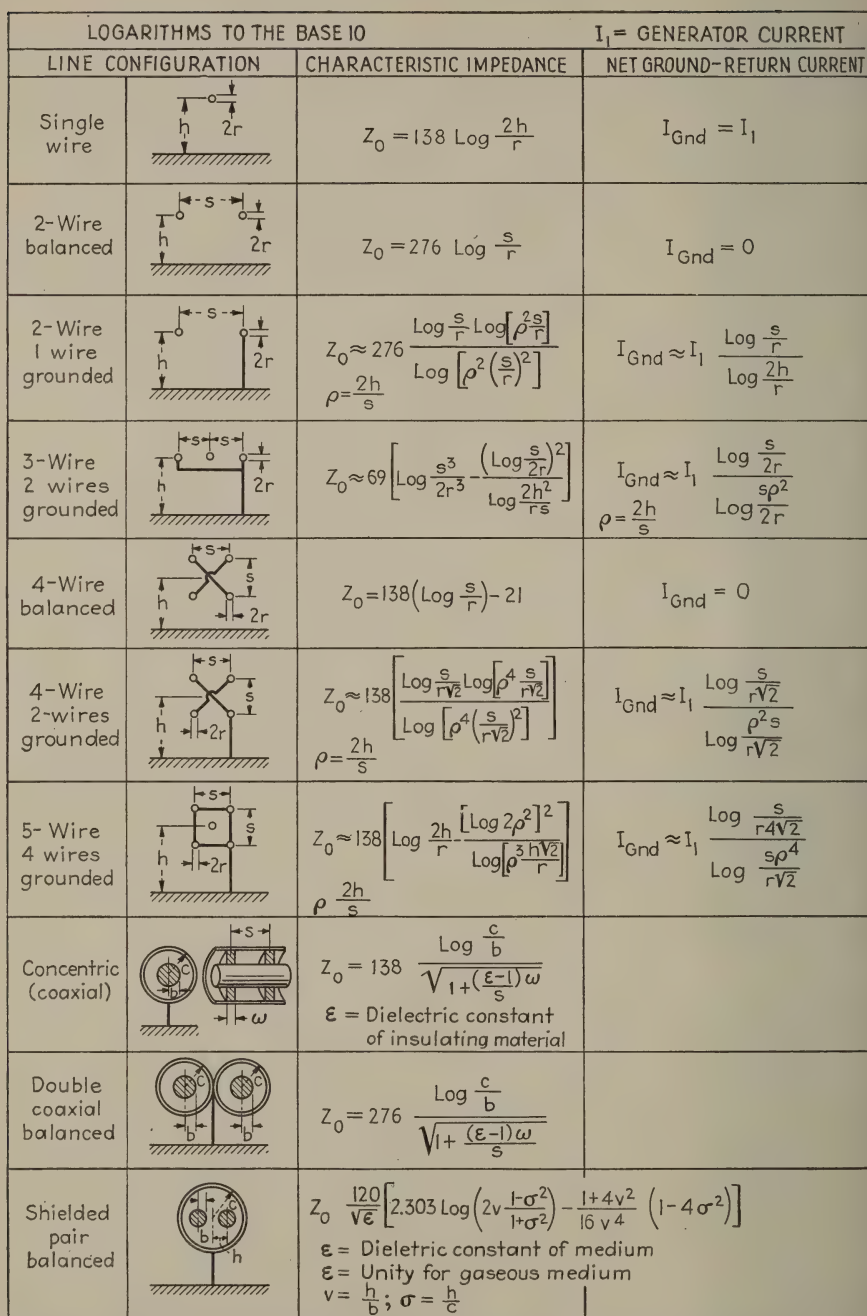 LOGARITHMS TO THE BASE 10 I₁= GENERATOR CURRENT
LINE CONFIGURATION CHARACTERISTIC IMPEDANCE NET GROUND-RETURN CURRENT
Single wire h 2r Z₀ = 138 Log 2h/r I_Gnd = I₁
2-Wire balanced s h 2r Z₀ = 276 Log s/r I_Gnd = 0
2-Wire 1 wire grounded s h 2r Z₀ ≈ 276 Log s/r Log[ρ² s/r] / Log [ρ² (s/r)²] I_Gnd ≈ I₁ Log s/r / Log 2h/r
ρ = 2h/s
3-Wire 2 wires grounded s s h 2r Z₀ ≈ 69 [Log s³/2r³ - (Log s/2r)² / Log 2h²/rs] I_Gnd ≈ I₁ Log s/2r / Log sρ²/2r
ρ = 2h/s
4-Wire balanced s s h 2r Z₀ = 138(Log s/r) - 21 I_Gnd = 0
4-Wire 2-wires grounded s s h 2r Z₀ ≈ 138 [Log s/r√2 Log[ρ⁴ s/r√2] / Log [ρ⁴ (s/r√2)²]] I_Gnd ≈ I₁ Log s/r√2 / Log ρ²s/r√2
ρ = 2h/s
5- Wire 4 wires grounded s s h 2r Z₀ ≈ 138 [Log 2h/r - [Log 2ρ²]² / Log[ρ³ h√2/r]] I_Gnd ≈ I₁ Log s/r4√2 / Log sρ⁴/r√2
ρ 2h/s
Concentric (coaxial) c b s ω Z₀ = 138 Log c/b / √1+(ε-1)ω/s
ε = Dielectric constant
of insulating material
Double coaxial balanced c c b b Z₀ = 276 Log c/b / √1+ (ε-1)ω/s
Shielded pair balanced c b h Z₀ 120/√ε [2.303 Log (2v 1-σ²/1+σ²) - 1+4v²/16v⁴ (1-4σ²)]
ε = Dieletric constant of medium
ε = Unity for gaseous medium
v = h/b ; σ = h/c